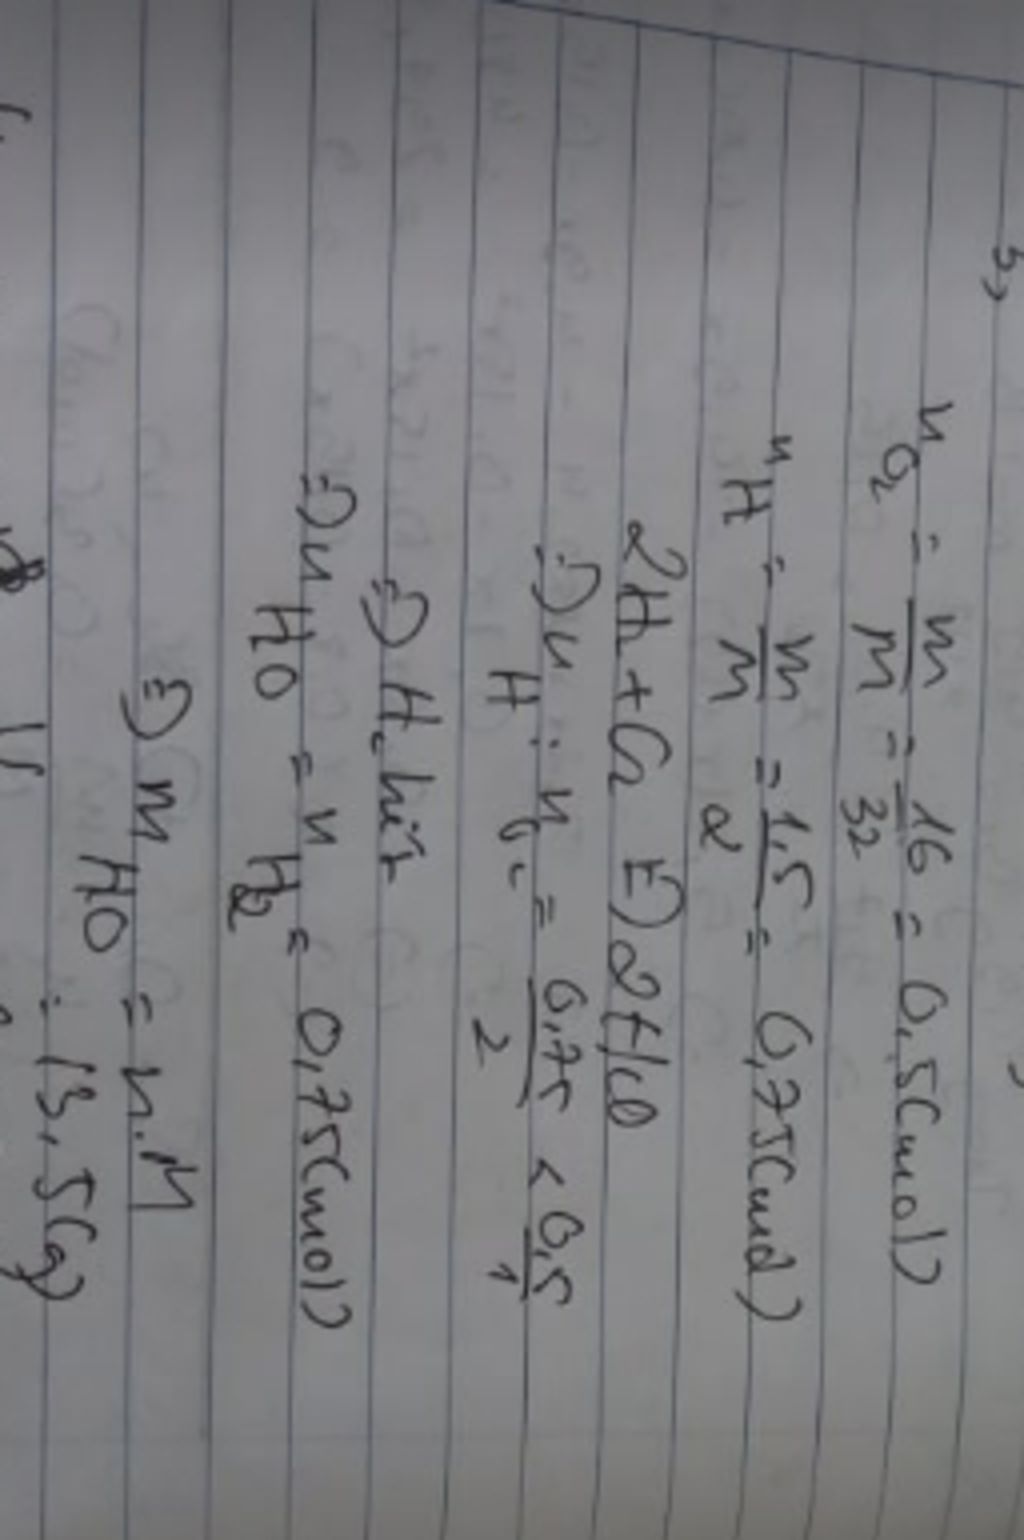 b,
n O2 = m/M = 16/32 = 0,5(mol)
n H = m/M = 1,5/2 = 0,75(mol)
2H2 + O2 => 2H2O
=> n H : n O2 = 0,75/2 < 0,5/1
=> H2 hết
=> n H2O = n H2 = 0,75(mol)
=> m H2O = n.M
= 13,5(g)